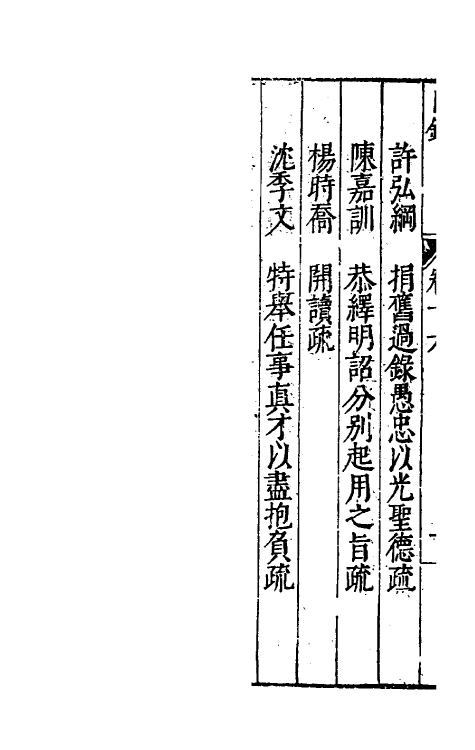 許弘綱　捐舊過錄愚忠以光聖德疏
陳嘉訓　恭繹明詔分别起用之旨疏
楊時喬　開讀疏
沈季文　特舉任事真才以盡抱負疏